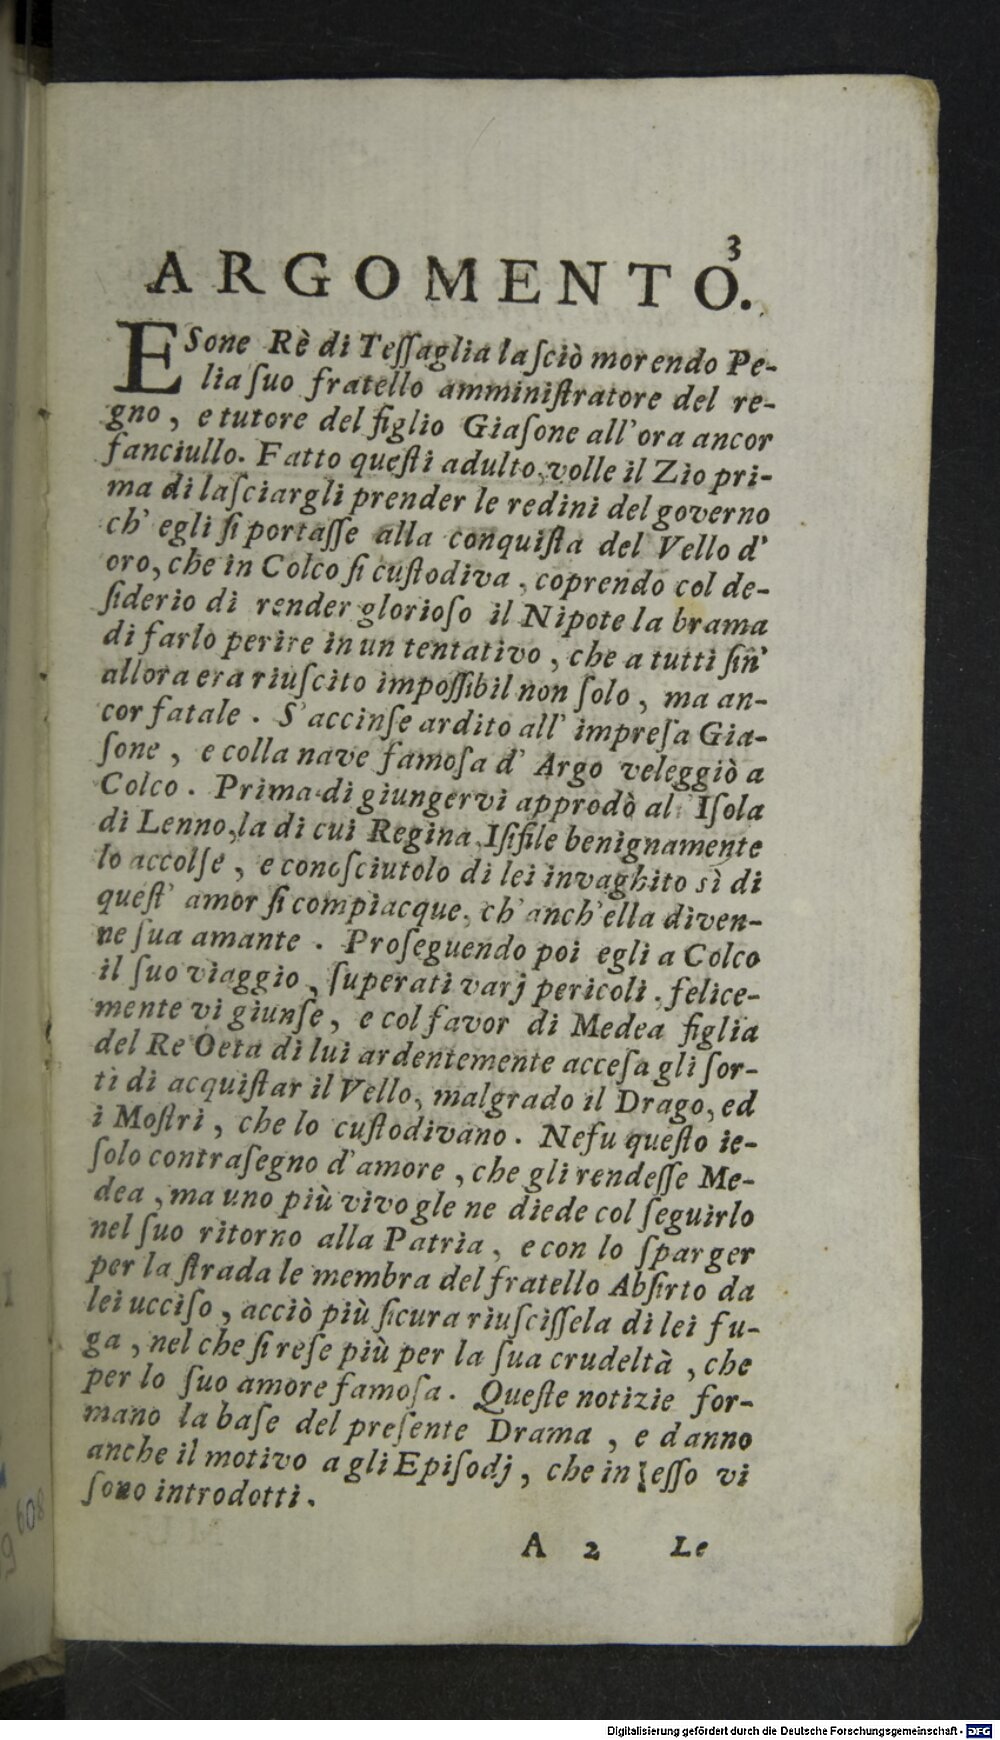 3
ARGOMENTO.
ESone Rè di Teſſaglia laſciò morendo Pe-
lia ſuo fratello amminiſtratore del re-
gno, e tutore del figlio Giaſone all'ora ancor
fanciullo. Fatto queſti adulto, volle il Zio pri-
ma di laſciargli prender le redini del governo
ch' egli ſi portaſſe alla conquiſta del Vello d'
oro, che in Colco ſi cuſtodiva, coprendo col de-
ſiderio di render glorioſo il Nipote la brama
di farlo perire in un tentativo, che a tutti ſin'
allora era riuſcito impoſſibil non ſolo, ma an-
cor fatale. S'accinſe ardito all' impreſa Gia-
ſone, e colla nave famoſa d' Argo veleggiò a
Colco. Prima di giungervi approdò al Iſola
di Lenno, la di cui Regina Iſifile benignamente
lo accolſe, e conoſciutolo di lei invaghito sì di
queſt' amor ſi compiacque, ch'anch'ella diven-
ne ſua amante. Proſeguendo poi egli a Colco
il ſuo viaggio, ſuperati varj pericoli, felice-
mente vi giunſe, e col favor di Medea figlia
del Re Oeta di lui ardentemente acceſa gli ſor-
tì di acquiſtar il Vello, malgrado il Drago, ed
i Moſtri, che lo cuſtodivano. Nefu queſto ie-
ſolo contraſegno d'amore, che gli rendeſſe Me-
dea, ma uno più vivo gle ne diede col ſeguirlo
nel ſuo ritorno alla Patria, e con lo ſparger
per la ſtrada le membra del fratello Abſirto da
lei ucciſo, acciò più ſicura riuſciſſela di lei fu-
ga, nel che ſi reſe più per la ſua crudeltà, che
per lo ſuo amore famoſa. Queſte notizie for-
mano la baſe del preſente Drama, e danno
anche il motivo a gli Epiſodj, che in eſſo vi
ſono introdotti.
A 2 Le
608
9
Digitalisierung gefördert durch die Deutsche Forschungsgemeinschaft - DFG